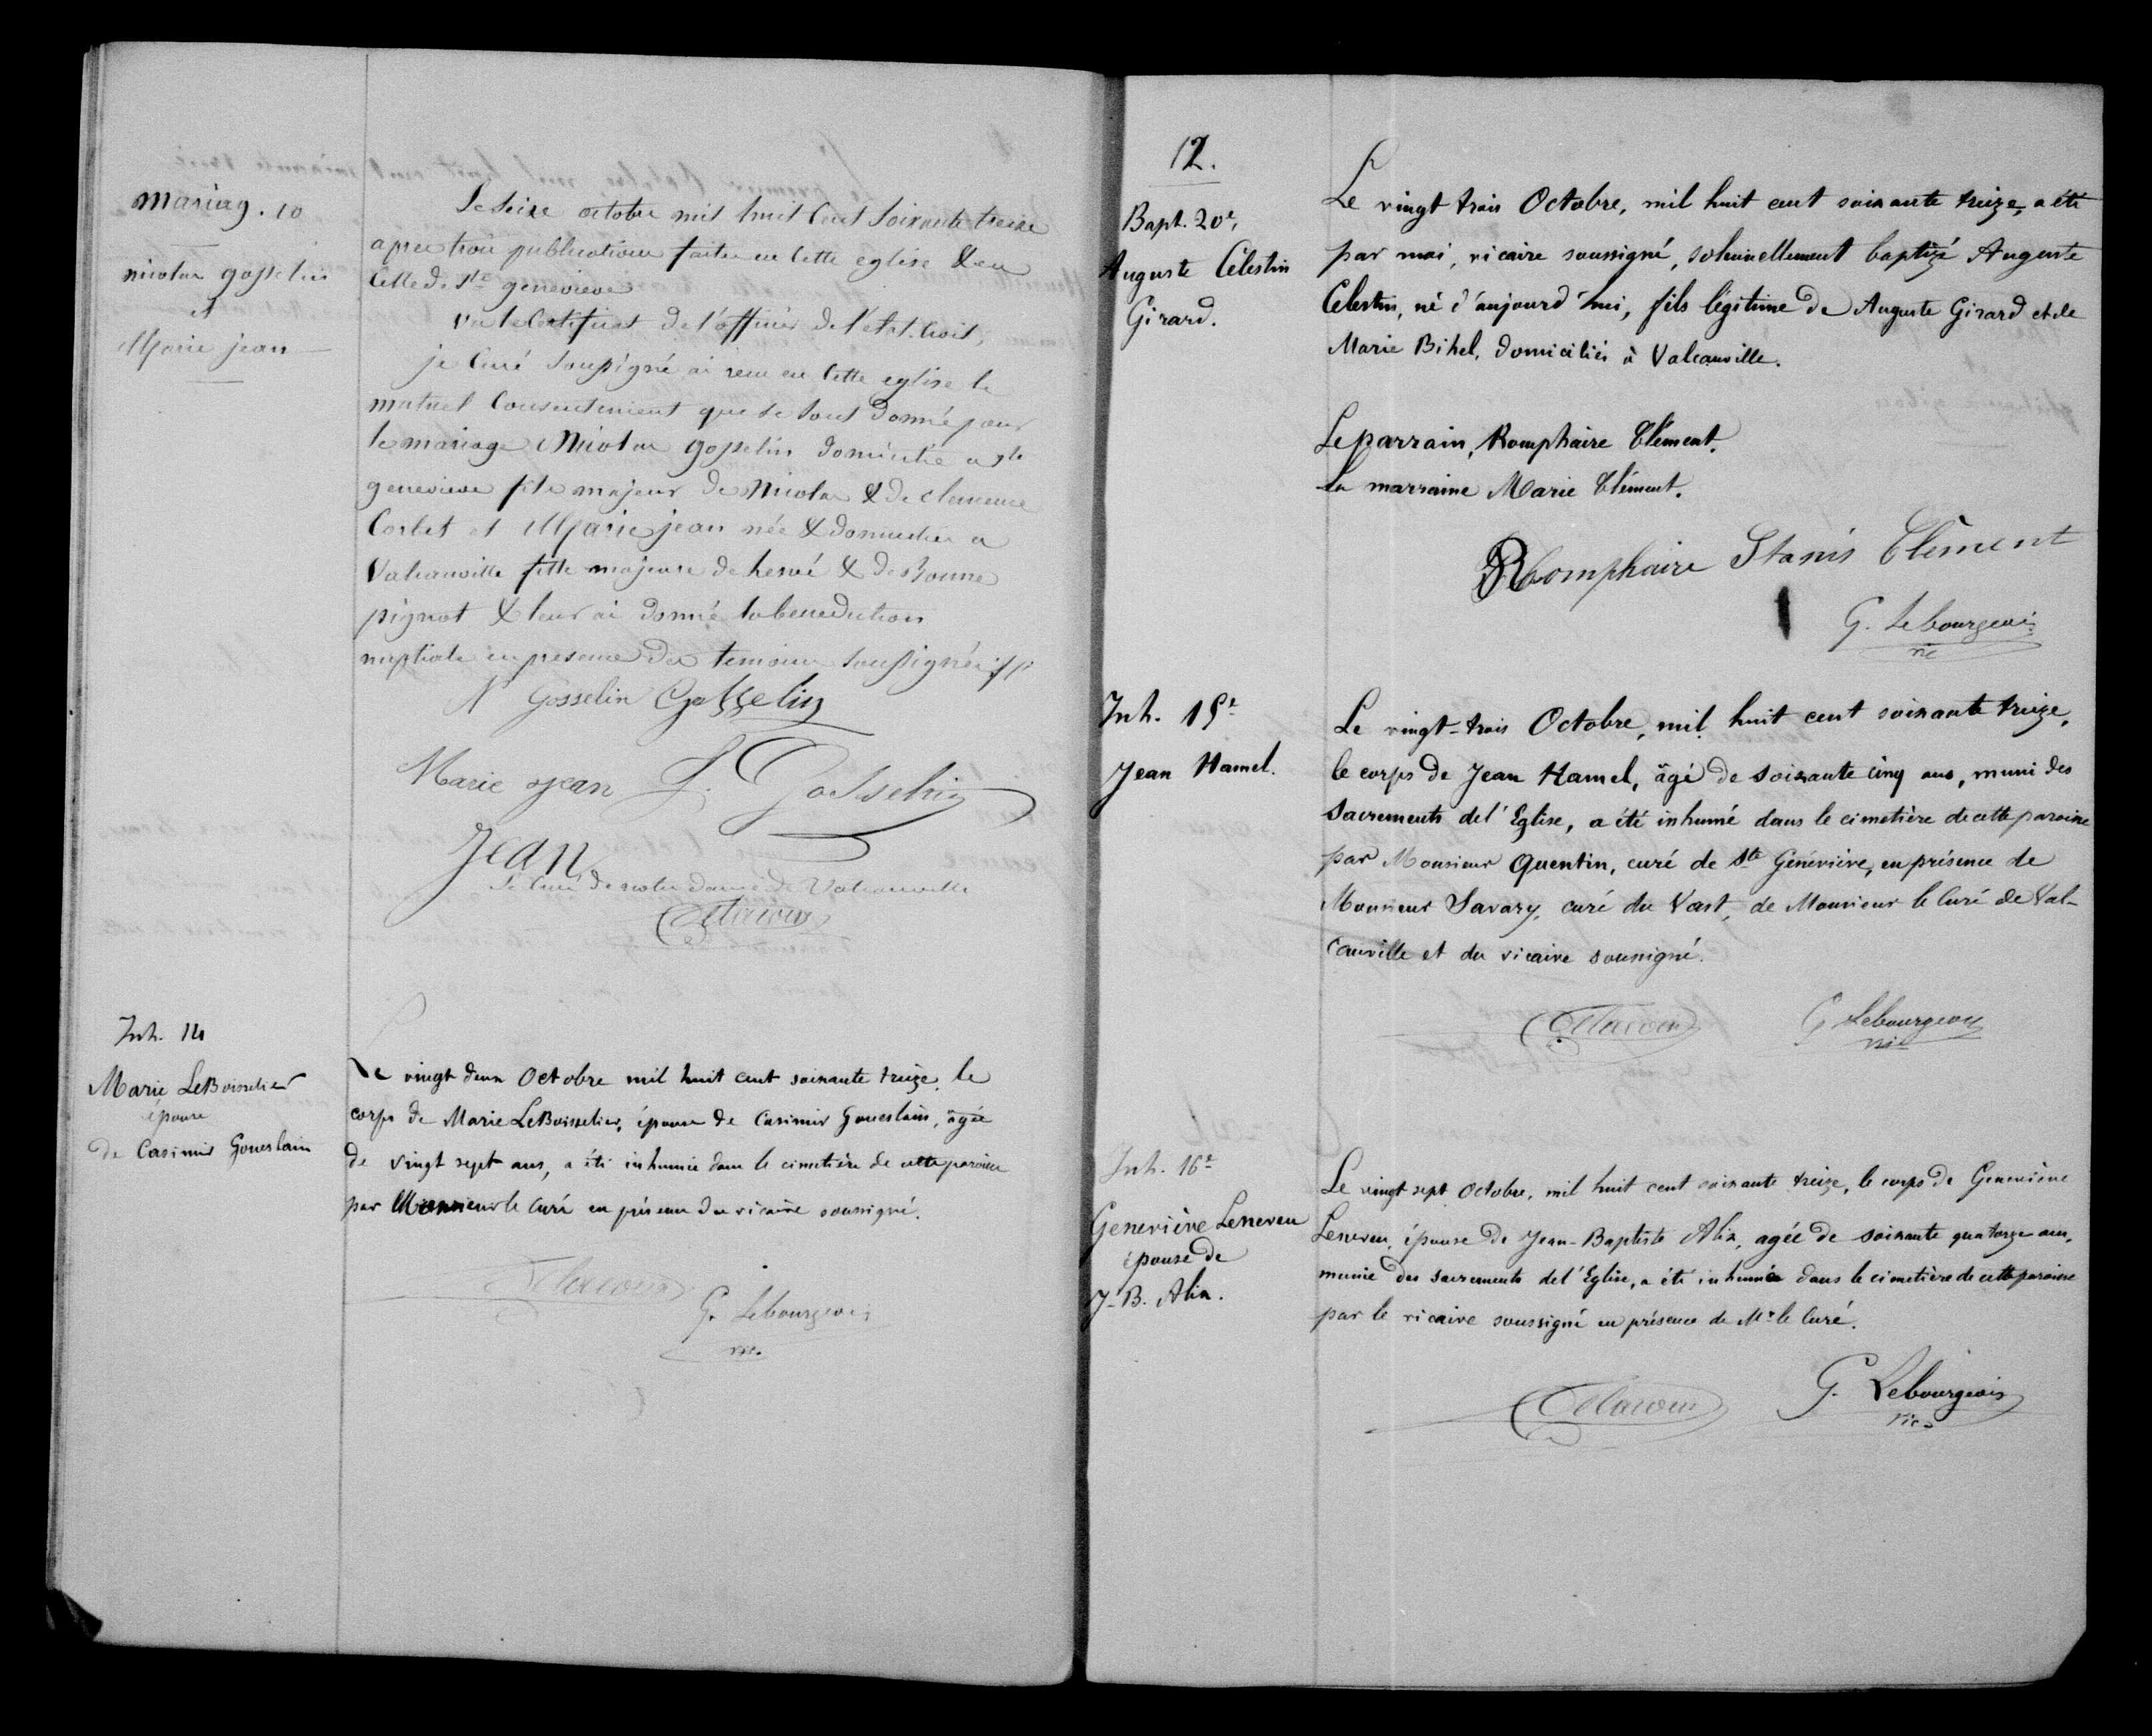 mariag. 10
nicolas gosselin
et
Marie jean
Le Seize octobre mil huit Cent Soixante treize
apres trois publications faites en Cette eglise & en
Celle de Ste genevieve
vu le Certificat de l'officier de l'etat. Civil,
je Curé Soussigné ai recu en Cette eglise le
mutuel Consentement que se sont donné pour
le mariage Nicolas gosselin domicilié a Ste
genevieve fils majeur de Nicolas & de clemence
Corbet et Marie jean née & domiciliée a
Valcanville fille majeure de hervé & de Bonne
pignot & leur ai donné la benediction
nuptiale en presence des temoins Soussignés
N Gosselin Gosselin
Marie Jean F. Gosselin
Jean
Le Curé de notre Dame de Valcanville
Delacour
Inh. 14
Marie LeBoisselier
épouse
de Casimir Goueslain
Le vingt deux Octobre mil huit cent soixante treize, le
corps de Marie LeBoisselier, épouse de Casimir Goueslain, âgée
de vingt sept ans, a été inhumée dans le cimetière de cette paroisse
par Monsieur le Curé en présence du vicaire soussigné.
Delacour
G. Lebourgeois
vic.
12.
Bapt. 20e,
Auguste Célestin
Girard.
Le vingt trois Octobre, mil huit cent soixante treize, a été
par moi, vicaire soussigné, solennellement baptizé Auguste
Celestin, né d'aujourd'hui, fils légitime de Auguste Girard et de
Marie Bihel, domiciliés à Valcanville.
Le parrain, Romphaire Clément.
La marraine Marie Clément.
Romphaire Stanis Clèment
G. Lebourgeois
vic
Inh. 15e
Jean Hamel.
Le vingt-trois Octobre, mil huit cent soixante treize,
le corps de Jean Hamel, âgé de soixante cinq ans, muni des
Sacrements de l'Eglise, a été inhumé dans le cimetière de cette paroisse
par Monsieur Quentin, curé de Ste Géneviève, en présence de
Monsieur Savary, curé du Vast, de Monsieur le Curé de Val-
canville et du vicaire soussigné.
Delacour
G Lebourgeois
vic
Inh. 16e
Geneviève Leneveu
épouse de
J-B. Alix.
Le vingt sept Octobre, mil huit cent soixante treize, le corps de Geneviève
Leneveu, épouse de Jean-Baptiste Alix, agée de soixante quatorze ans,
munie des sacrements de l'Eglise, a été inhumée dans le cimetière de cette paroisse
par le vicaire soussigné en présence de Mr le Curé.
Delacour
G. Lebourgeois
vic.